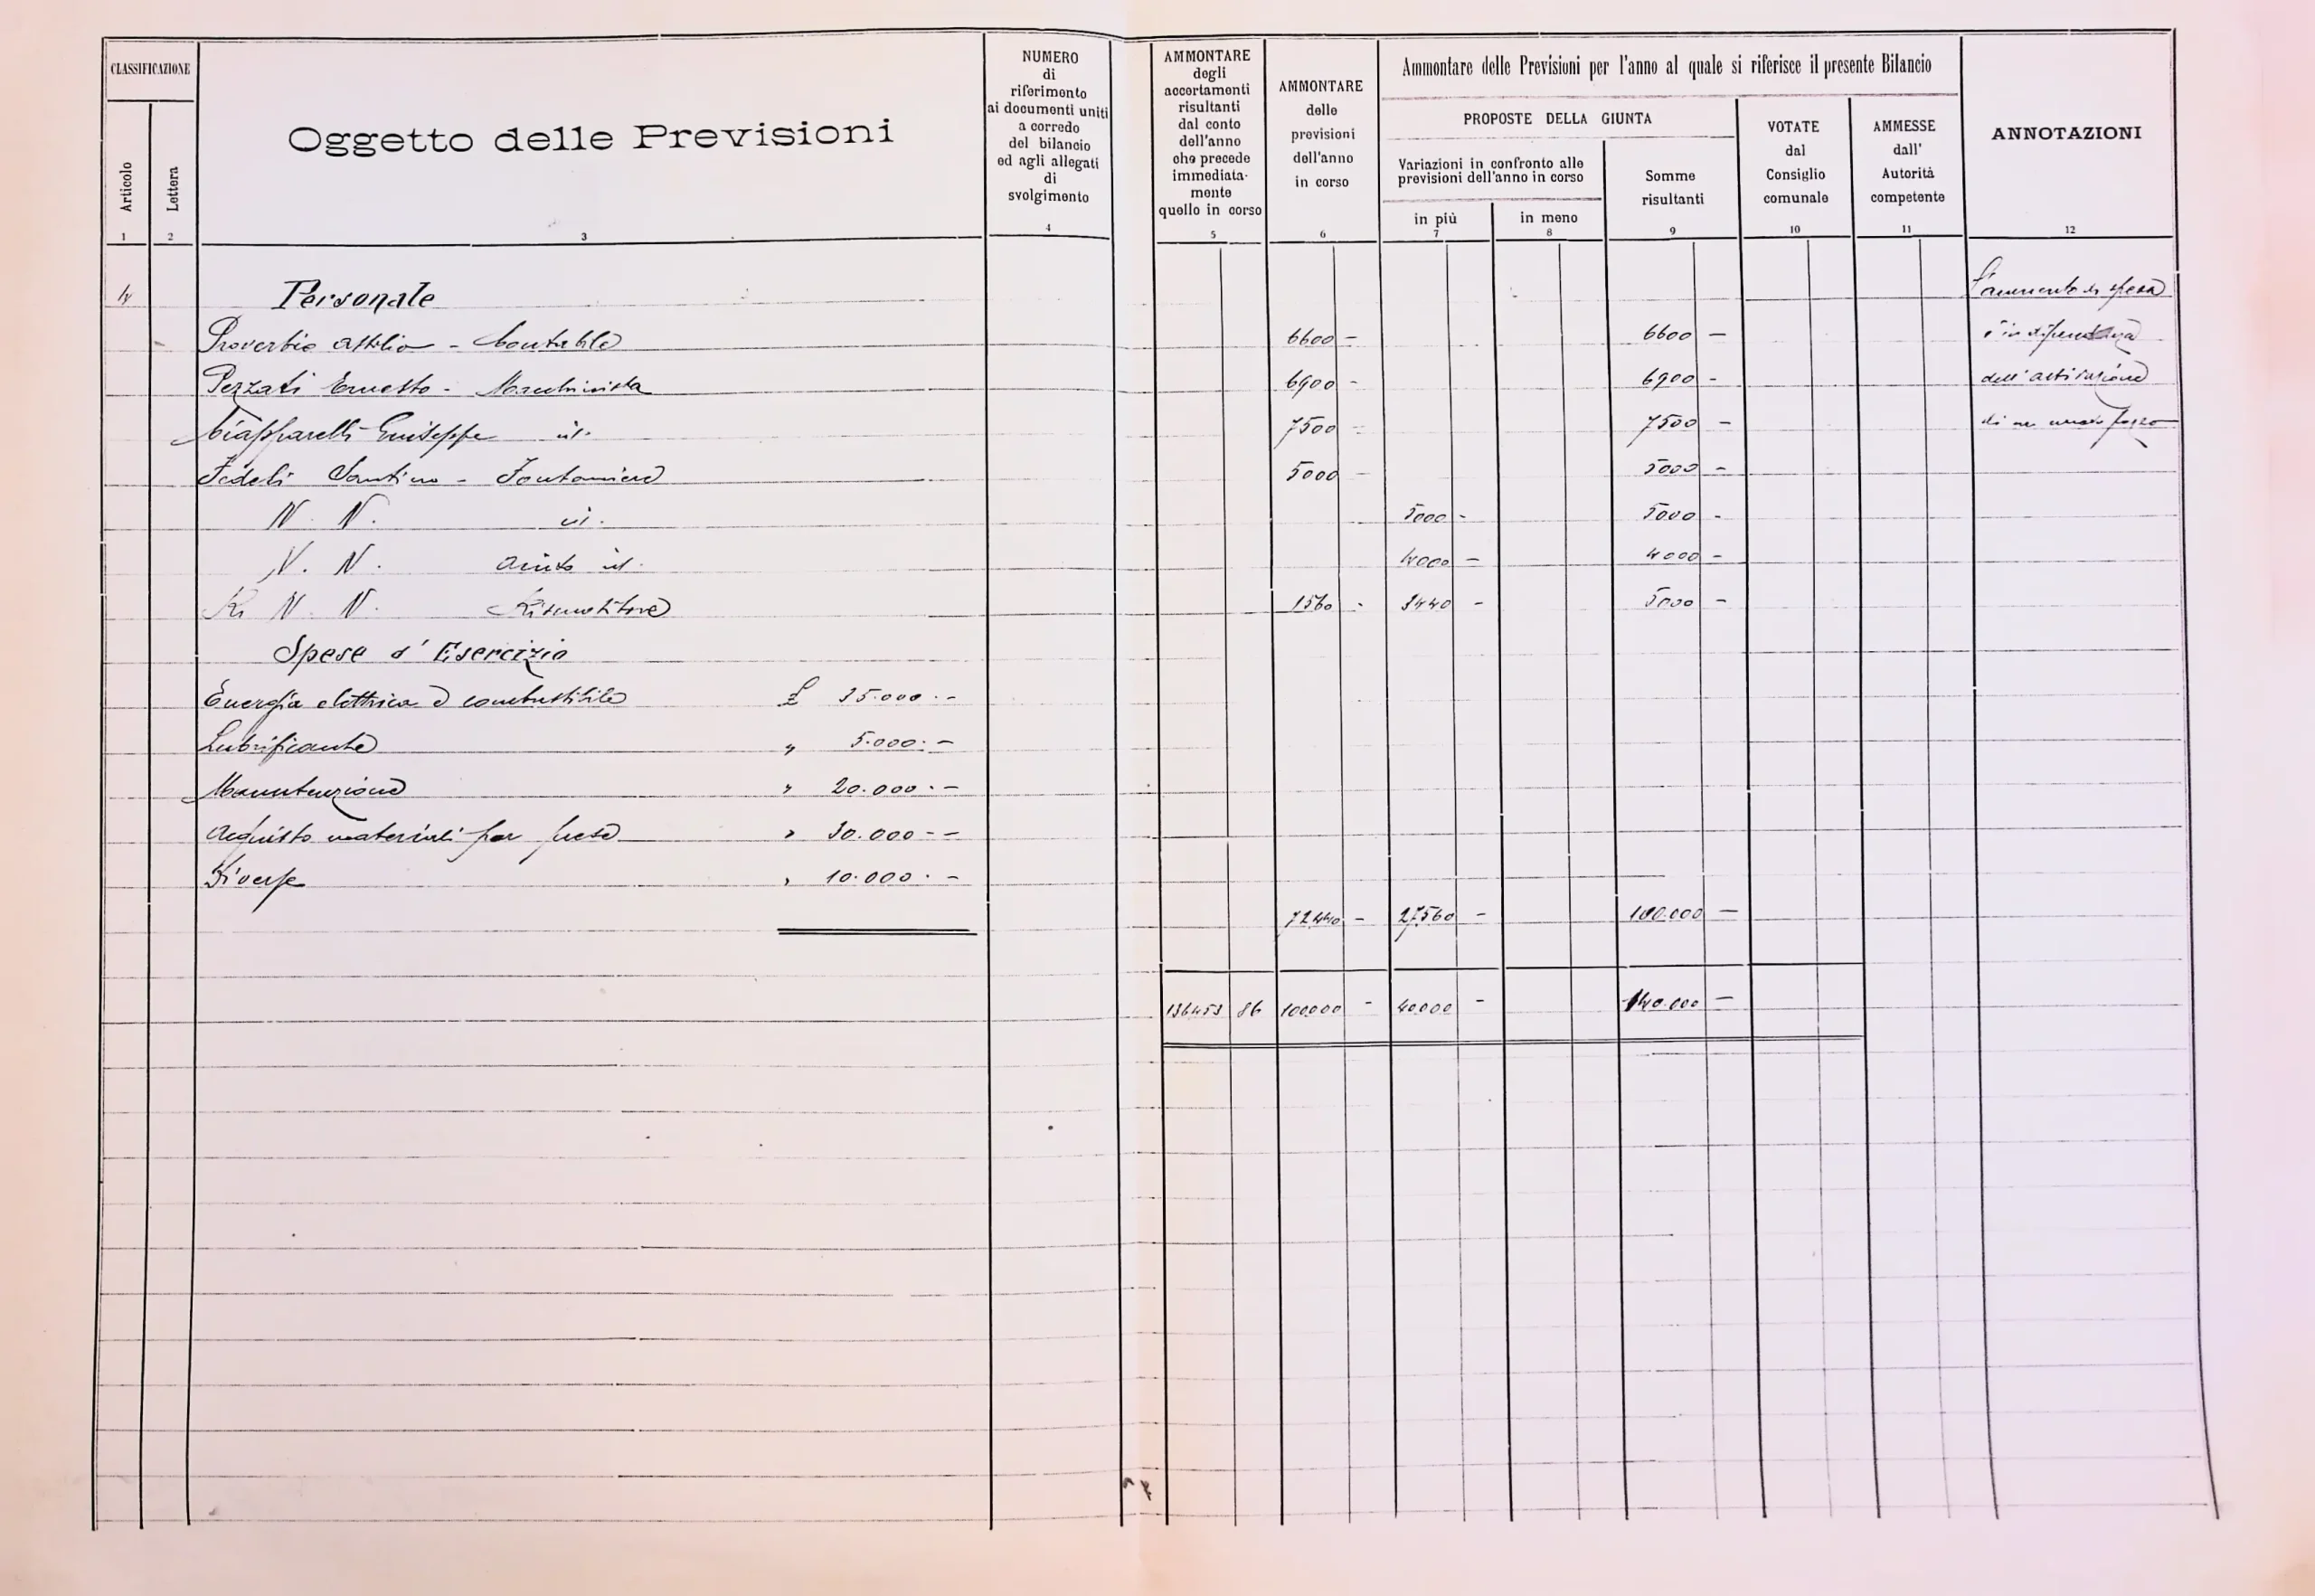 CLASSIFICAZIONE
Articolo
Lettera
Oggetto delle Previsioni
NUMERO
di
riferimento
ai documenti uniti
a corredo
del bilancio
ed agli allegati
di
svolgimento
AMMONTARE
degli
accertamenti
risultanti
dal conto
dell'anno
che precede
immediata-
mente
quello in corso
AMMONTARE
delle
previsioni
dell'anno
in corso
Ammontare delle Previsioni per l'anno al quale si riferisce il presente Bilancio
PROPOSTE DELLA GIUNTA
Variazioni in confronto alle
previsioni dell'anno in corso
in più
in meno
Somme
risultanti
VOTATE
dal
Consiglio
comunale
AMMESSE
dall'
Autorità
competente
ANNOTAZIONI
1 2 3 4 5 6 7 8 9 10 11 12
4 Personale L'aumento di spesa
Proverbio Attilio - Contabile 6600 - 6600 — è in dipendenza
Pezzati Ernesto - Macchinista 6900 - 6900 - dell'attivazione
Ciapparelli Giuseppe id. 7500 - 7500 — di un nuovo pozzo
Fedeli Santino - Fontaniere 5000 - 5000 -
N. N. id. 5000 - 5000 -
N. N. aiuto id. 4000 - 4000 -
N. N. 1560 - 3440 - 5000 -
Spese d'Esercizio
Energia elettrica e combustibile £ 35.000.-
Lubrificante " 5.000.-
Manutenzione " 20.000.-
Acquisto materiali per prese " 30.000.-
Diverse " 10.000.-
72440 - 27560 - 100.000 —
136453 86 100000 - 40000 - 140.000 —